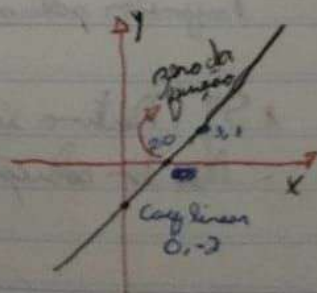 Y
zero da
função
2,0
3,1
X
Coef linear
0, -2